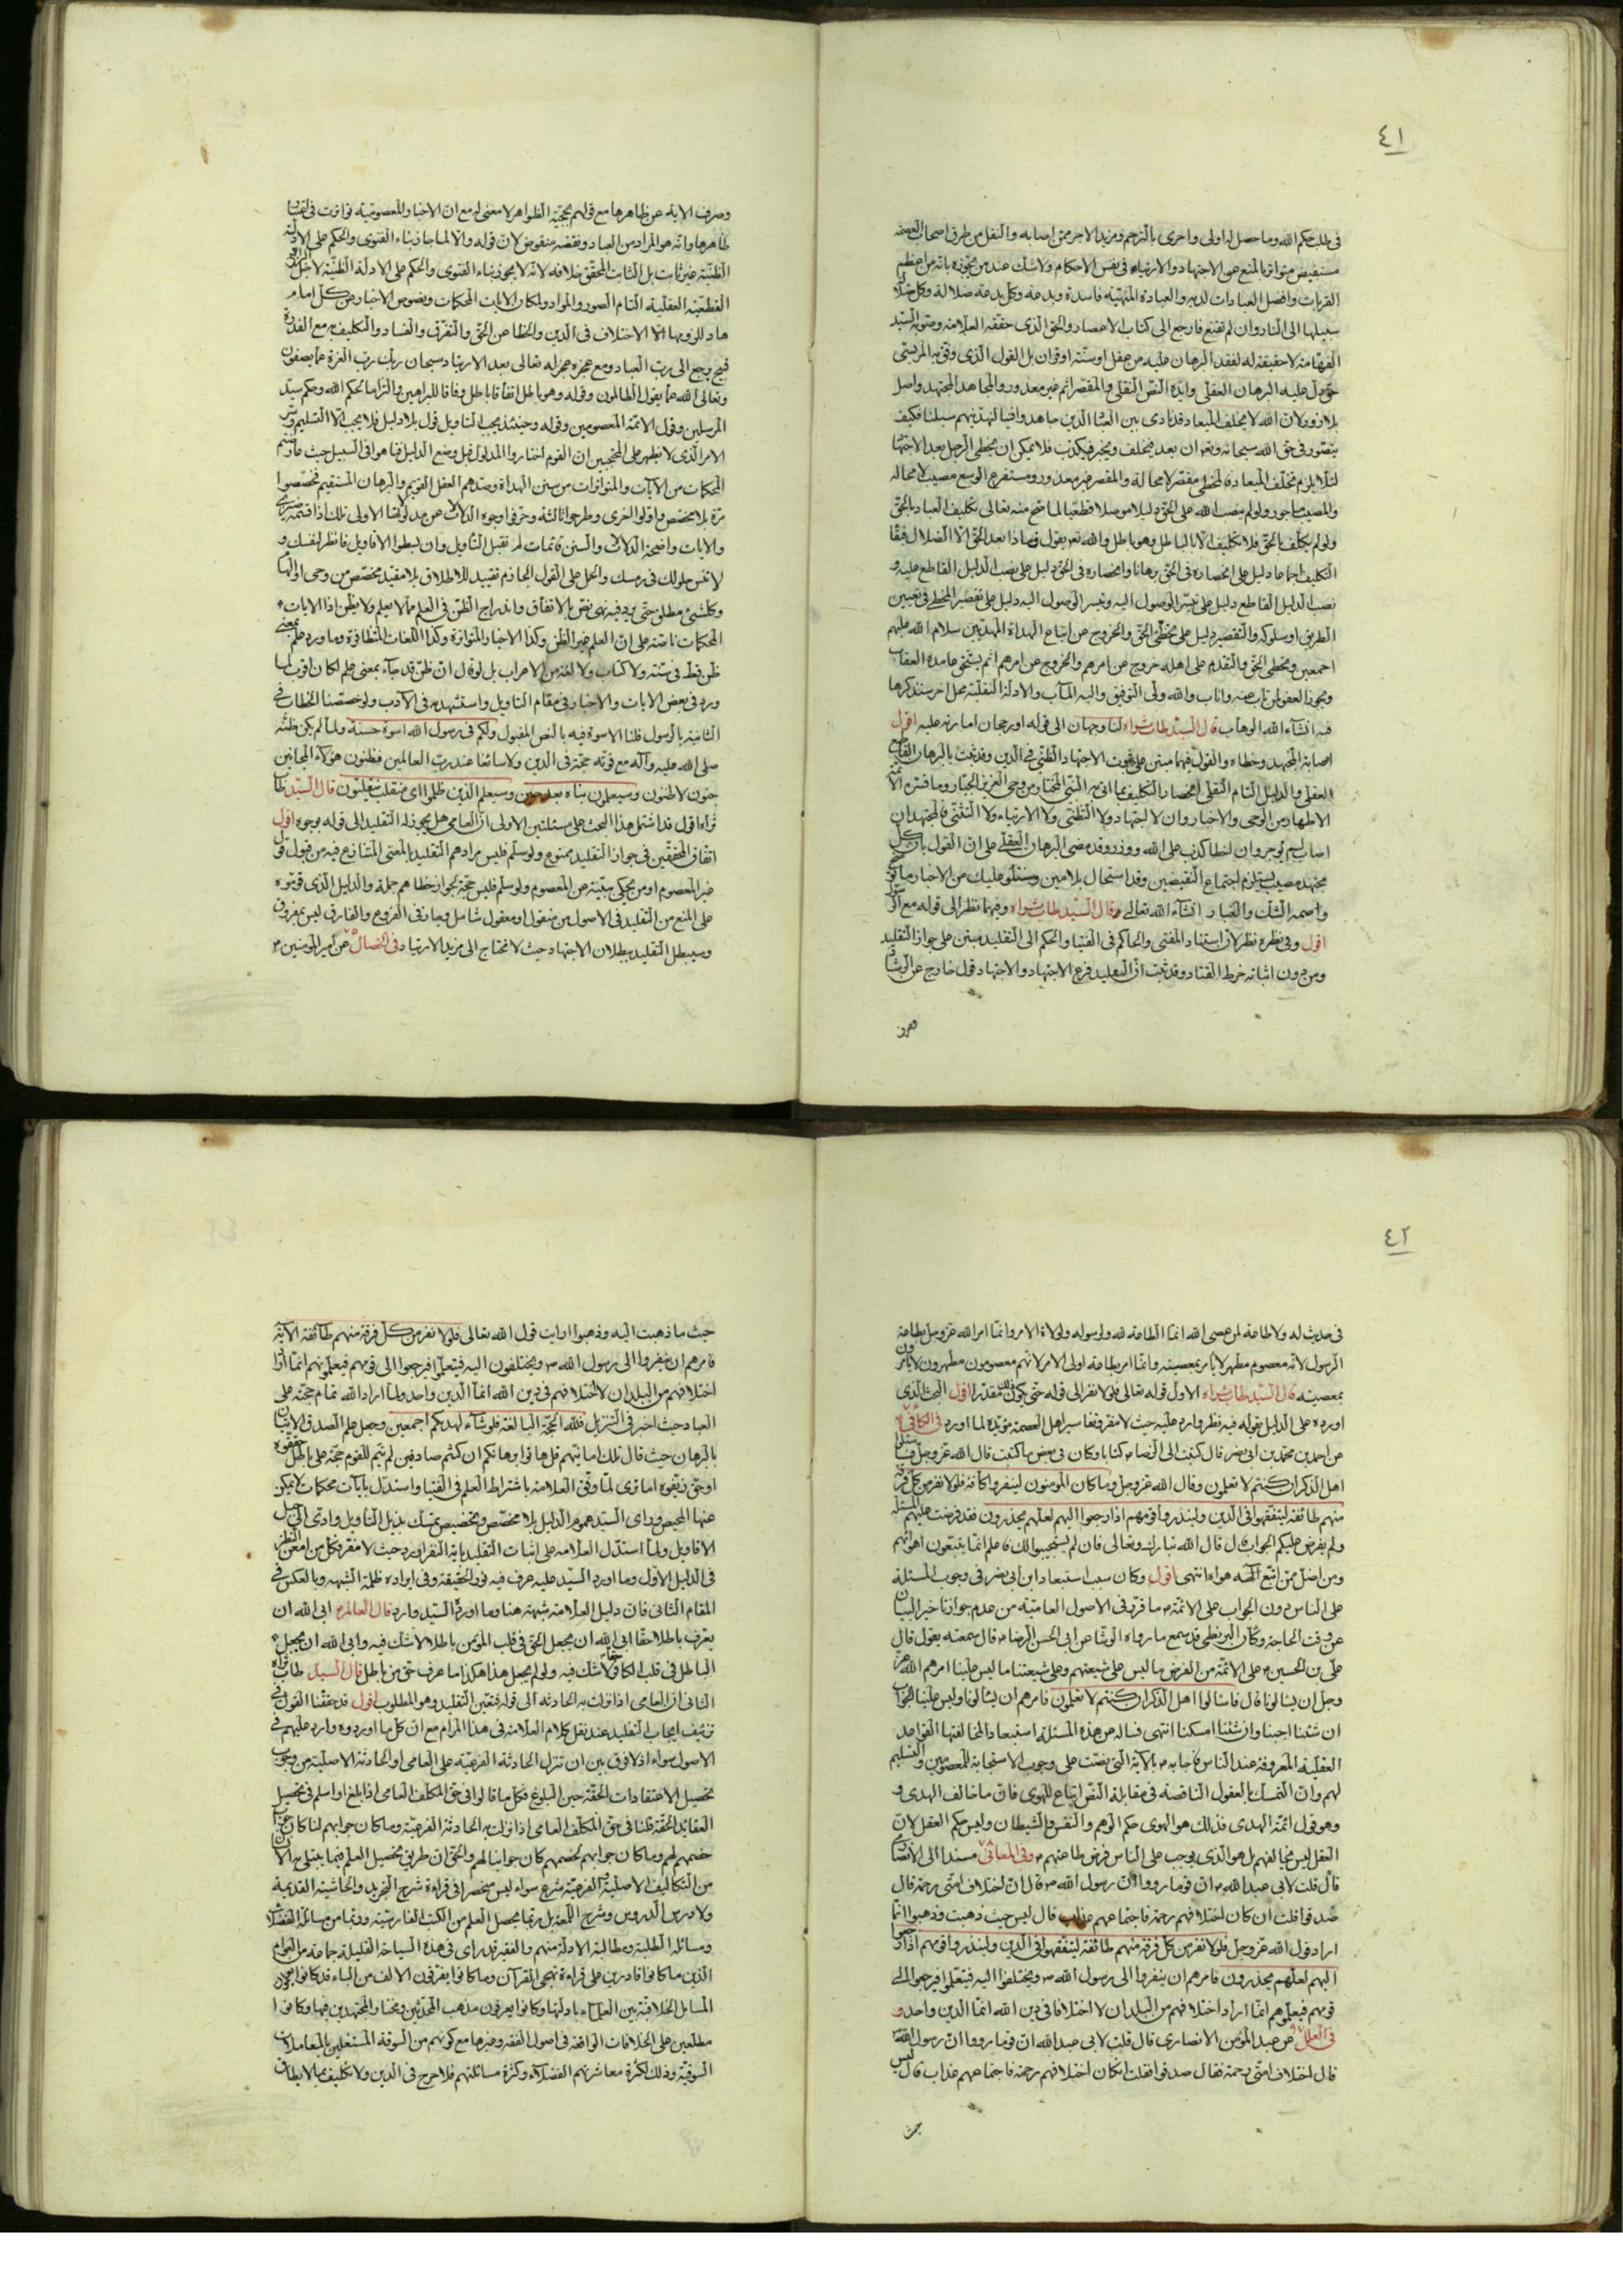 ٤١
فى طلب حكم الله وما حصل له اولى واحرى بالترجيح ومزيد الاجر ممن اصابه والنقل من طرق اصحاب العصمة
مستفيض متواتر بالمنع عن الاجتهاد والارتياء فى نفس الاحكام ولا شك عند من يجوزه بانه من اعظم
القربات وافضل العبادات لديه والعبادة المنهيّة فاسدة وبدعة وكل بدعة ضلالة وكل ضلالة
سبيلها الى النار وان لم تقنع فارجع الى كتاب الاعصار والحق الذى حققه العلامة وصوبه السيد
الفهامة لا حقيقة له لفقد البرهان عليه من عقل او سنة او قران بل القول الذى وفق به المريسى
حق دل عليه البرهان العقلى وايده النص النقلى والمقصر اثم غير معذور والمجاهد المجتهد واصل
بلا زور لان الله لا يخلف الميعاد قد نادى بين العباد الذين جاهدوا فينا لنهدينهم سبلنا فكيف
يتصور فى حق الله سبحانه وتعالى ان يعد فيخلف ويخبر فيكذب فلا يمكن ان يخطى الرجل بعد الاجتهاد
لئلا يلزم تخلف الميعاد فالمخطى مقصر لا محالة والمقصر غير معذور ومستفرغ الوسع مصيب لا محاله
والمصيب ماجور ولو لم ينصب الله على الحق دليلا موصلا قطعيا لما صح منه تعالى تكليف العباد بالحق
ولو لم يكلف بالحق فلا تكليف الا بالباطل وهو باطل والله تعالى يقول فماذا بعد الحق الا الضلال فبقاء
التكليف اجماعا دليل على انحصاره فى الحق برهانا وانحصاره فى الحق دليل على نصب الدليل القاطع عليه و
نصب الدليل القاطع دليل على تيسر الوصول اليه وتيسر الوصول اليه دليل على تقصير المخطى فى تعيين
الطريق او سلوكه والتقصير دليل على تخطى الحق والخروج عن اتباع الهداة المهديين سلام الله عليهم
اجمعين وتخطى الحق والتقدم على اهله خروج عن امرهم والخروج عن امرهم اثم يستحق عامده العقاب
ويجوز العفو لمن تاب عنه واناب والله ولى التوفيق واليه المآب والادلة النقلية محل اخر سنذكرها
فيه انشاء الله الوهاب قال السيد طاب ثراه لنا وجهان الى قوله او رجحان امارته عليه اقول
اصابة المجتهد وخطاه والقول فيهما مبتن على ثبوت الاجتهاد الظنى فى الدين وقد ثبت بالبرهان القاطع
العقلى والدليل التام النقلى انحصار التكليف بما اتى به النبى المختار من وحى العزيز الجبار وما فسره الائمة
الاطهار من الوحى والاخبار وان لا اجتهاد ولا التظنى ولا الارتياء ولا التثنى فالمجتهد ان
اصاب لم يوجر وان اخطا كذب على الله ووزر وقد مضى البرهان العقلى على ان القول بان كل
مجتهد مصيب يستلزم اجتماع النقيضين وقد استحال بلا مين وسنتلو عليك من الاخبار ما توضح
واصمة الشك والغبار انشاء الله تعالى قال السيد طاب ثراه وفيهما نظر الى قوله مع
اقول وفى نظره نظر لان استناد المفتى والحاكم فى الفتيا والحكم الى التقليد مبتن على جواز التقليد
ومن دون اثباته خرط القتاد وقد ثبت ان التقليد فرع الاجتهاد والاجتهاد قول خارج عن الرشاد
وصرف
وصرف الاية عن ظاهرها مع قولهم بحجية الظواهر لا معنى له مع ان الاخبار المعصومية تواترت فى اثبات
ظاهرها وانه هو المراد من العباد ونقضه منقوض لان قوله والا لما جاز بناء الفتوى والحكم على الادلة
الظنية غير ثابت بل الثابت المحقق خلافه لانه لا يجوز بناء الفتوى والحكم على الادلة الظنية لاجل
القطعية العقلية التام الصور والمواد ولمكان الايات المحكمات ونصوص الاخبار عن كل امام
هاد للزومها الاختلاف فى الدين والخطا عن الحق والتفرق والفساد والتكليف به مع القدرة
قبيح يرجع الى رب العباد ومع عجزه عجز اله تعالى بعد الارتياد سبحان ربك رب العزة عما يصفون
وتعالى الله عما يقول الظالمون وقوله وهو باطل اتفاقا باطل وفاقا للبراهين والزاما لحكم الله وحكم سيد
المرسلين وقول الائمة المعصومين وقوله وحينئذ يجب التاويل قول بلا دليل فلا يجب الا التسليم وسر
الامر الذى لا يظهر على المحتجبين ان القوم اختاروا المدلول قبل وضع الدليل فتاهوا فى السبيل حيث عارضتم
المحكمات من الآيات والمتواترات من سنن الهداة وصدهم العقل القويم والبرهان المستقيم فخصصوا
مرة بلا مخصص واولوا اخرى وطرحوا ثالثة وحرفوا وجوه الدلالات عن مدلولاتها الاولى تلك اذا قسمة ضيزى
والايات واضحة الدلالات والسنن قائمات لم تقبل التاويل وان بسطوا الاقاويل فانظر لنفسك و
لا تنس حلولك فى رمسك والحمل على القول الجازم تقييد للاطلاق بلا مقيد مخصص من وحى او الهام
وكل شىء مطلق حتى يرد فيه نهى نص بالاتفاق واندراج الظن فى العلم مما لا يعلم ولا يظن اذا الايات
المحكمات ناصة على ان العلم غير الظن وكذا الاخبار المتواترة وكذا اللغات المتظافرة وما ورد علم بمعنى
ظن قط فى سنة ولا كتاب ولا لغة من الاعراب بل لو قال ان ظن قد جاء بمعنى علم لكان اقرب لما
ورد فى بعض الايات والاخبار فى مقام التاويل واستشهد به فى الادب ولو خصصنا الخطاب فى
الثانية بالرسول قلنا الاسوة فيه بالنص المقبول ولكم فى رسول الله اسوة حسنة ولما لم يكن ظنه
صلى الله عليه وآله مع قوته حجة فى الدين ولا سائغا عند رب العالمين فظنون هؤلاء المجانين
جنون لا ظنون وسيعلمون نباه بعد حين وسيعلم الذين ظلموا اى منقلب ينقلبون قال السيد طاب
ثراه اقول قد اشتمل هذا البحث على مسئلتين الاولى ان العامى هل يجوز له التقليد الى قوله بوجوه اقول
اتفاق المحققين فى جواز التقليد ممنوع ولو سلم فليس مرادهم التقليد بالمعنى المتنازع فيه من قبول قول
غير المعصوم او من يحكى بينة عن المعصوم ولو سلم فليس حجة لجواز خطاهم جملة والدليل الذى قرروه
على المنع من التقليد فى الاصول من منقول او معقول شامل وجار فى الفروع والفارق ليس بمفروق
وسيبطل التقليد ببطلان الاجتهاد حيث لا نحتاج الى مزيد الارتياد فى الخصال عن امير المؤمنين
٤٢
فى حديث له ولا طاعة لمن عصى الله انما الطاعة لله ولرسوله ولولاة الامر وانما امر الله عز وجل بطاعة
الرسول لانه معصوم مطهر لا يامر بمعصيته وانما امر بطاعة اولى الامر لانهم معصومون مطهرون لا يامرون
بمعصيته قال السيد طاب ثراه الاول قوله تعالى فلولا نفر الى قوله حتى يكون مقدرا اقول البحث الذى
اورده على الدليل بقوله فيه نظر وارد عليه حيث لا مفر وتفاسير اهل العصمة مؤيدة لما اورد فى الكافى
عن احمد بن محمد بن ابى نصر قال كتبت الى الرضا كتابا وكان فى بعض ما كتبت قال الله عز وجل فاسئلوا
اهل الذكر ان كنتم لا تعلمون وقال الله عز وجل وما كان المؤمنون لينفروا كافة فلولا نفر من كل فرقة
منهم طائفة ليتفقهوا فى الدين ولينذروا قومهم اذا رجعوا اليهم لعلهم يحذرون فقد فرضت عليهم المسئلة
ولم يفرض عليكم الجواب قال قال الله تبارك وتعالى فان لم يستجيبوا لك فاعلم انما يتبعون اهوائهم
ومن اضل ممن اتبع هواه انتهى اقول وكان سبب استبعاد ابن ابى نصر فى وجوب المسئلة
على الناس دون الجواب على الائمة ما قرر فى الاصول العامية من عدم جواز تاخير البيان
عن وقت الحاجة وكان البزنطى قد سمع ما رواه الوشا عن ابى الحسن الرضا قال سمعته يقول قال
على بن الحسين على الائمة من الفرض ما ليس على شيعتهم وعلى شيعتنا ما ليس علينا امرهم الله عز
وجل ان يسالونا قال فاسالوا اهل الذكر ان كنتم لا تعلمون فامرهم ان يسالونا وليس علينا الجواب
ان شئنا اجبنا وان شئنا امسكنا انتهى فساله عن هذه المسئلة استبعادا لمخالفتها القواعد
العقلية المعروفة عند الناس فاجابه بالآية التى نصت على وجوب الاستجابة للمعصومين والتسليم
لهم وان التمسك بالعقول الناقصة فى مقابلة النص اتباع للهوى فان ما خالف الهدى و
وهو قول ائمة الهدى فذلك هو الهوى حكم الوهم والنفس والشيطان وليس حكم العقل لان
العقل ليس مخالفهم بل هو الذى يوجب على الناس فرض طاعتهم وفى المعانى مسندا الى الانصارى
قال قلت لابى عبد الله ان قوما رووا ان رسول الله قال ان اختلاف امتى رحمة قال
صدقوا قلت ان كان اختلافهم رحمة فاجتماعهم عذاب قال ليس حيث ذهبت وذهبوا انما
اراد قول الله عز وجل فلولا نفر من كل فرقة منهم طائفة ليتفقهوا فى الدين ولينذروا قومهم اذا رجعوا
اليهم لعلهم يحذرون فامرهم ان ينفروا الى رسول الله ويختلفوا اليه فيتعلموا فيرجعوا الى
قومهم فيعلموهم انما اراد اختلافهم من البلدان لا اختلافا فى دين الله انما الدين واحد و
فى العلل عن عبد المؤمن الانصارى قال قلت لابى عبد الله ان قوما رووا ان رسول الله
قال اختلاف امتى رحمة فقال صدقوا فقلت ان كان اختلافهم رحمة فاجتماعهم عذاب قال ليس
حيث
حيث ما ذهبت اليه وذهبوا ارايت قول الله تعالى فلولا نفر من كل فرقة منهم طائفة الآية
فامرهم ان ينفروا الى رسول الله ويختلفون اليه فيتعلموا فيرجعوا الى قومهم فيعلمونهم انما اراد
اختلافهم من البلدان لا اختلافهم فى دين الله انما الدين واحد ولما اراد الله تمام حجته على
العباد حيث اخبر فى التنزيل فلله الحجة البالغة فلو شاء لهديكم اجمعين وجعل علم الصدق الاتيان
بالبرهان حيث قال تلك امانيهم قل هاتوا برهانكم ان كنتم صادقين لم يتم للقوم حجة على باطل حققوه
او حق زيفوه اما ترى لما وفق العلامة باشتراط العلم فى الفتيا واستدل بآيات محكمات لا يمكن
عنها المحيص وراى السيد عموم الدليل بلا مخصص وتخصيص تمسك بذيل التاويل وادى الى
الاقاويل ولما استدل العلامة على اثبات التقليد باية النفر اورد حيث لا مفر وكل من امعن النظر
فى الدليل الاول وما اورد السيد عليه عرف فيه نور الحقيقة وفى ايراده ظلمة الشبهة وبالعكس فى
المقام الثانى فان دليل العلامة شبهة هنا وما اورده السيد وارد قال العالم ابى الله ان
يعرف باطلا حقا ابى الله ان يجعل الحق فى قلب المؤمن باطلا لا شك فيه وابى الله ان يجعل
الباطل فى قلب الكافر حقا لا شك فيه ولو لم يجعل هذا هكذا ما عرف حق من باطل قال السيد طاب ثراه
الثانى ان العامى اذا نزلت به الحادثة الى قوله فتعين التقليد وهو المطلوب اقول قد حققنا القول فى
تزييف ايجاب التقليد عند نقل كلام العلامة فى هذا المرام مع ان كل ما اوردوه وارد عليهم فى
الاصول سواء اذ لا فرق بين ان تنزل الحادثة الفرعية على العامى او الحادثة الاصلية من وجوب
تحصيل الاعتقادات الحقة حين البلوغ فكل ما قالوا فى حق المكلف العامى اذا بلغ او اسلم فى تحصيل
العقائد الحقة قلنا فى حق المكلف العامى اذا نزلت به الحادثة الفرعية وما كان جوابهم لنا كان جواب
خصمهم لهم وما كان جوابهم لخصمهم كان جوابنا لهم والحق ان طريق تحصيل العلم فيما يبتلى به الانسان
من التكاليف الاصلية والفرعية شرع سواء ليس منحصرا فى قراءة شرح التجريد والحاشية القديمة
ولا درس الدروس وشرح اللمعة بل ربما يحصل العلم من الكتب الفارسية وربما من مسائلة الفضلاء
ومسائلة الطلبة ومطالبة الادلة منهم والفقير قد راى فى هذه السياحة القليلة جماعة من العوام
الذين ما كانوا قادرين على قراءة تهجى القرآن وما كانوا يفرقون الالف من الباء قد كانوا يعرفون
المسايل الخلافية بين العلماء بادلتها وكانوا يعرفون مذهب المحدثين ومختار المجتهدين فيها وكانوا
مطلعين على الخلافات الواقعة فى اصول الفقه وغيرها مع كونهم من السوقة المشتغلين بالمعاملات
السوقية وذلك لكثرة معاشرتهم الفضلاء وكثرة مسائلتهم فلا حرج فى الدين ولا تكليف بما لا يطاق